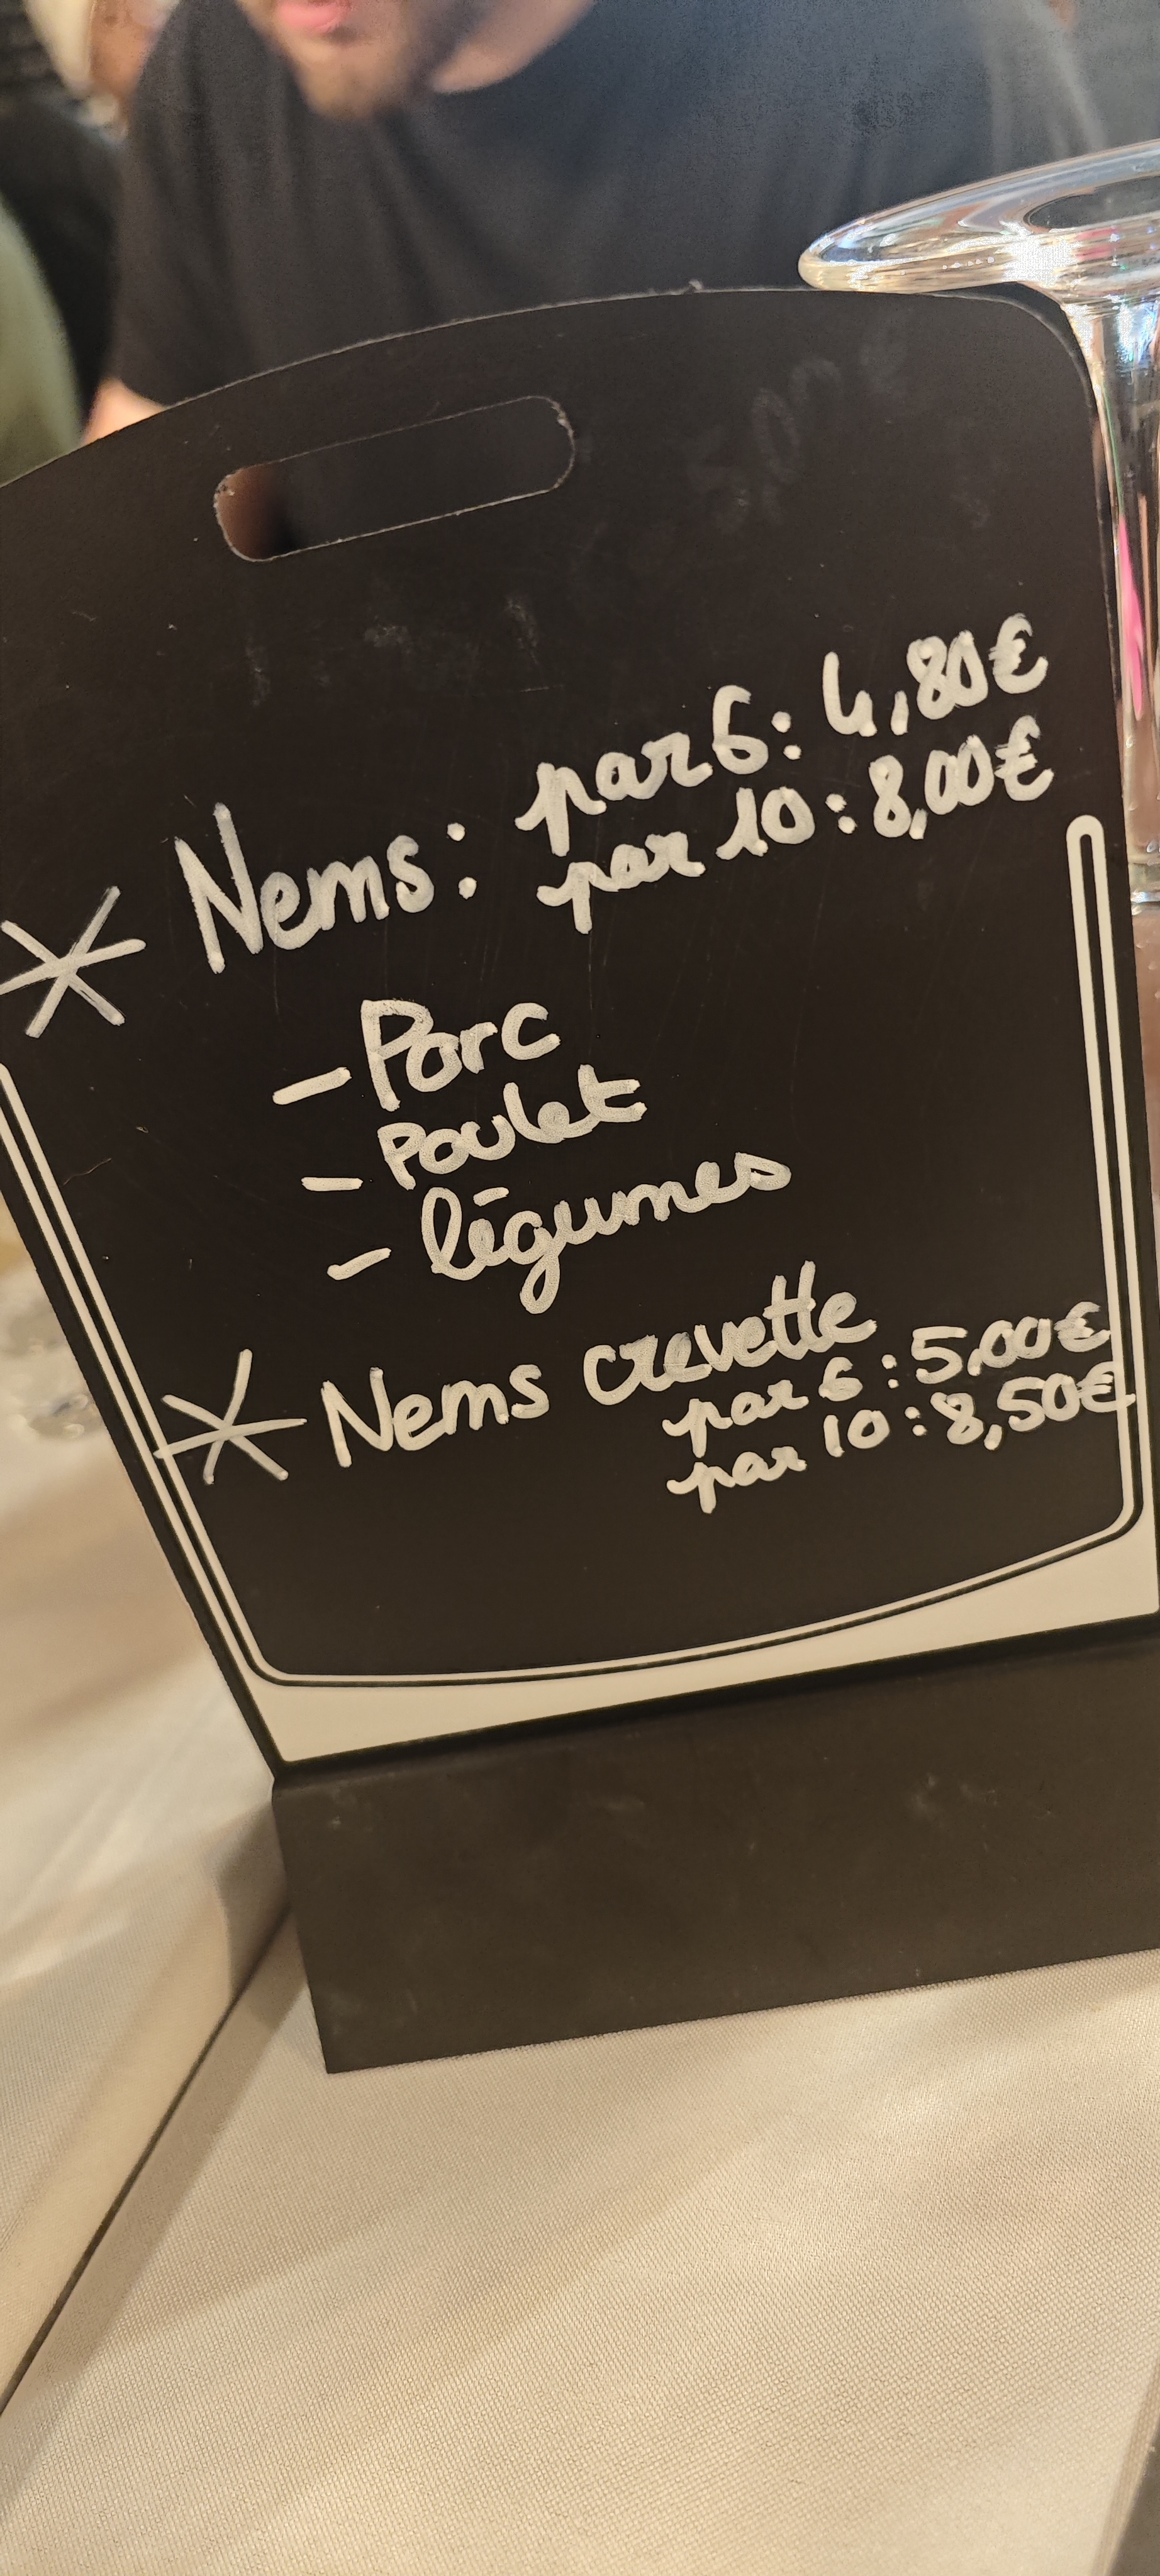 * Nems: par 6: 4,80€
par 10: 8,00€
- Porc
- Poulet
- légumes
* Nems crevette
par 6: 5,00€
par 10: 8,50€